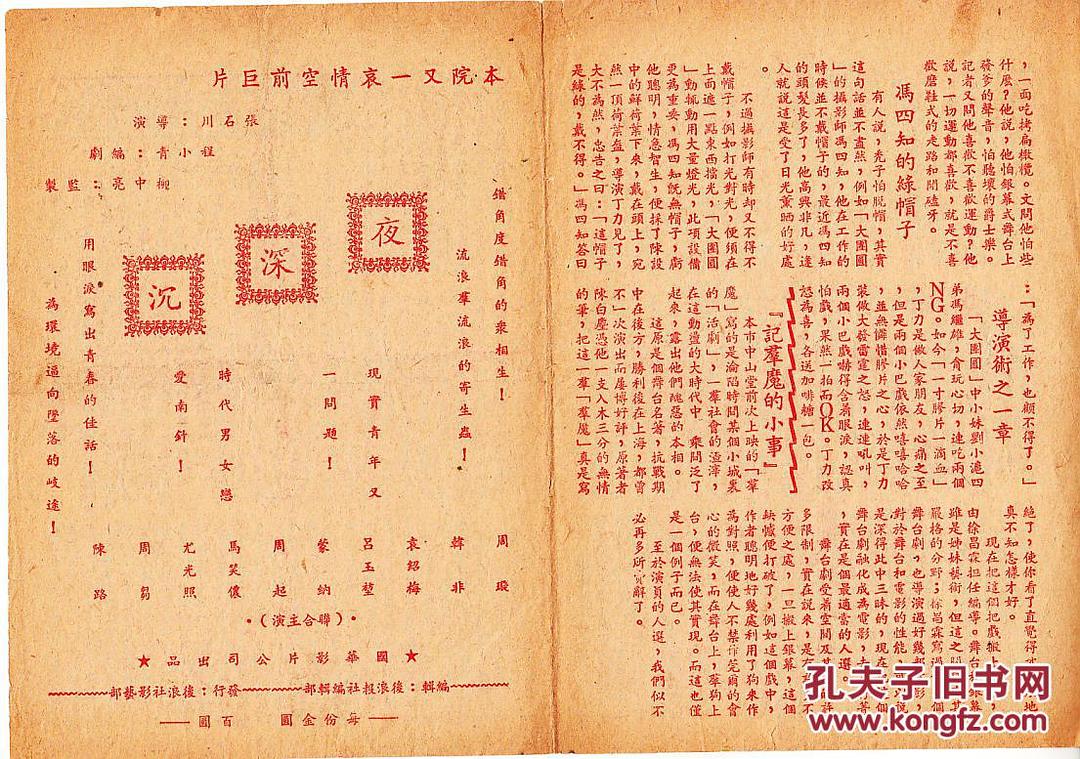 ，一面吃拷扁橄欖。又問他怕些
什麼？他說，他怕銀幕式舞台上
發爹的聲音，怕聽壞的爵士樂。
記者又問他喜歡不喜歡運動？他
說，一切運動都喜歡，就是不喜
歡磨鞋式的走路和閒磕牙。
馮四知的綠帽子
有人說，禿子怕脫帽，其實
這句話並不盡然，例如「大團圓
」的攝影師馮四知，他在工作的
時候並不戴帽子的，最近馮四知
的頭髮長多了，他高興非凡，逢
人就說這是受了日光薰晒的好處
。
不過攝影師有時却又不得不
戴帽子，例如打光對光，便須在
上面遮一點東西擋光，「大團圓
」動輒動用大量燈光，此項設備
更為重要，馮四知既無帽子，虧
他聰明，情急智生，便採了陳設
中的鮮荷葉下來，戴在頭上，宛
然一頂荷葉盔，導演丁力見了，
大不為然，忠告之曰：「這帽子
是綠的，戴不得。」馮四知答曰
：「為了工作，也顧不得了。」
導演術之一章
「大團圓」中小妹劉小滬四
弟馮繼雄，貪玩心切，連吃兩個
NG。如今「一寸膠片一滴血」
，丁力是做人家朋友，心痛之至
，但是兩個小巴戲依然嘻嘻哈哈
，並無憐惜膠片之心，於是丁力
裝做大發雷霆之怒，連連吼叫，
兩個小巴戲嚇得含着眼淚，認真
怕戲，果然一拍而OK。丁力改
怒為喜，各送加啡糖一包。
『記羣魔的小事』
本市中山堂前次上映的「羣
魔」寫的是淪陷時間某個小城裏
的「活劇」，一羣社會的渣滓，
在這動盪的大時代中，乘間泛了
起來，露出他們醜惡的本相。
這原是個舞台名著，抗戰期
中在後方，勝利後在上海，都曾
不」次演出而屢博好評，原著者
陳白塵憑他一支入木三分的無情
的筆，把這一羣「羣魔」真是寫
絕了，使你看了直覺得
真不知怎樣才好。
現在把這個把戲搬上
由徐昌霖担任編導。舞台和銀幕
雖是姊妹藝術，但這之間
嚴格的分野；徐昌霖寫過
舞台劇，也導演過好幾部
對於舞台和電影的性能
是深得此中三昧的，現在
舞台劇融化成為電影，去
，實在是個最適當的人選。
舞台劇受着空間及其
多限制，實在說來，是有
方便之處，一旦搬上銀幕，這個
缺憾便打破了，例如這個戲中，
作者聰明地好幾處利用了狗來作
為對照，便使人不禁作莞爾的會
心的微笑，而在舞台上，華狗上
台，便無法使其實現。而這也僅
是一個例子而已。
至於演員的人選，我們似不
必再多所辭了。
本院又一哀情空前巨片
導演：張石川
編劇：程小青
監製：柳中亮
夜深沉
錯角度錯角的衆相生！
流浪羣流浪的寄生蟲！
現實青年又
一問題！
時代男女戀
愛南針！
用眼淚寫出青春的佳話！
為環境逼向墜落的岐途！
周璇
韓非
袁紹梅
呂玉堃
蒙納
周起
馬笑儂
尤光照
周芻
陳路
（聯合主演）
★國華影片公司出品★
編輯：後浪報社編輯部
發行：後浪社影藝部
每份金圓　百圓
孔夫子旧书网
www.kongfz.com